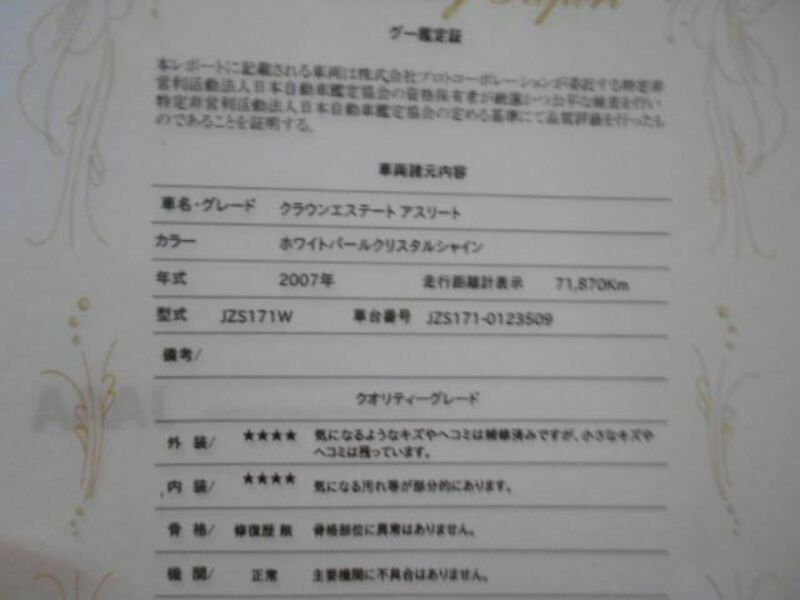 グー鑑定証
本レポートに記載される車両は株式会社プロトコーポレーションが委託する特定非
営利活動法人日本自動車鑑定協会の資格保有者が厳正かつ公平な検査を行い
特定非営利活動法人日本自動車鑑定協会の定める基準にて品質評価を行ったも
のであることを証明する。
車両諸元内容
車名・グレード クラウンエステート アスリート
カラー ホワイトパールクリスタルシャイン
年式 2007年 走行距離計表示 71,870Km
型式 JZS171W 車台番号 JZS171-0123509
備考/
クオリティーグレード
外 装/ ★★★★ 気になるようなキズやヘコミは補修済みですが、小さなキズや
ヘコミは残っています。
内 装/ ★★★★ 気になる汚れ等が部分的にあります。
骨 格/ 修復歴 無 骨格部位に異常はありません。
機 関/ 正常 主要機関に不具合はありません。